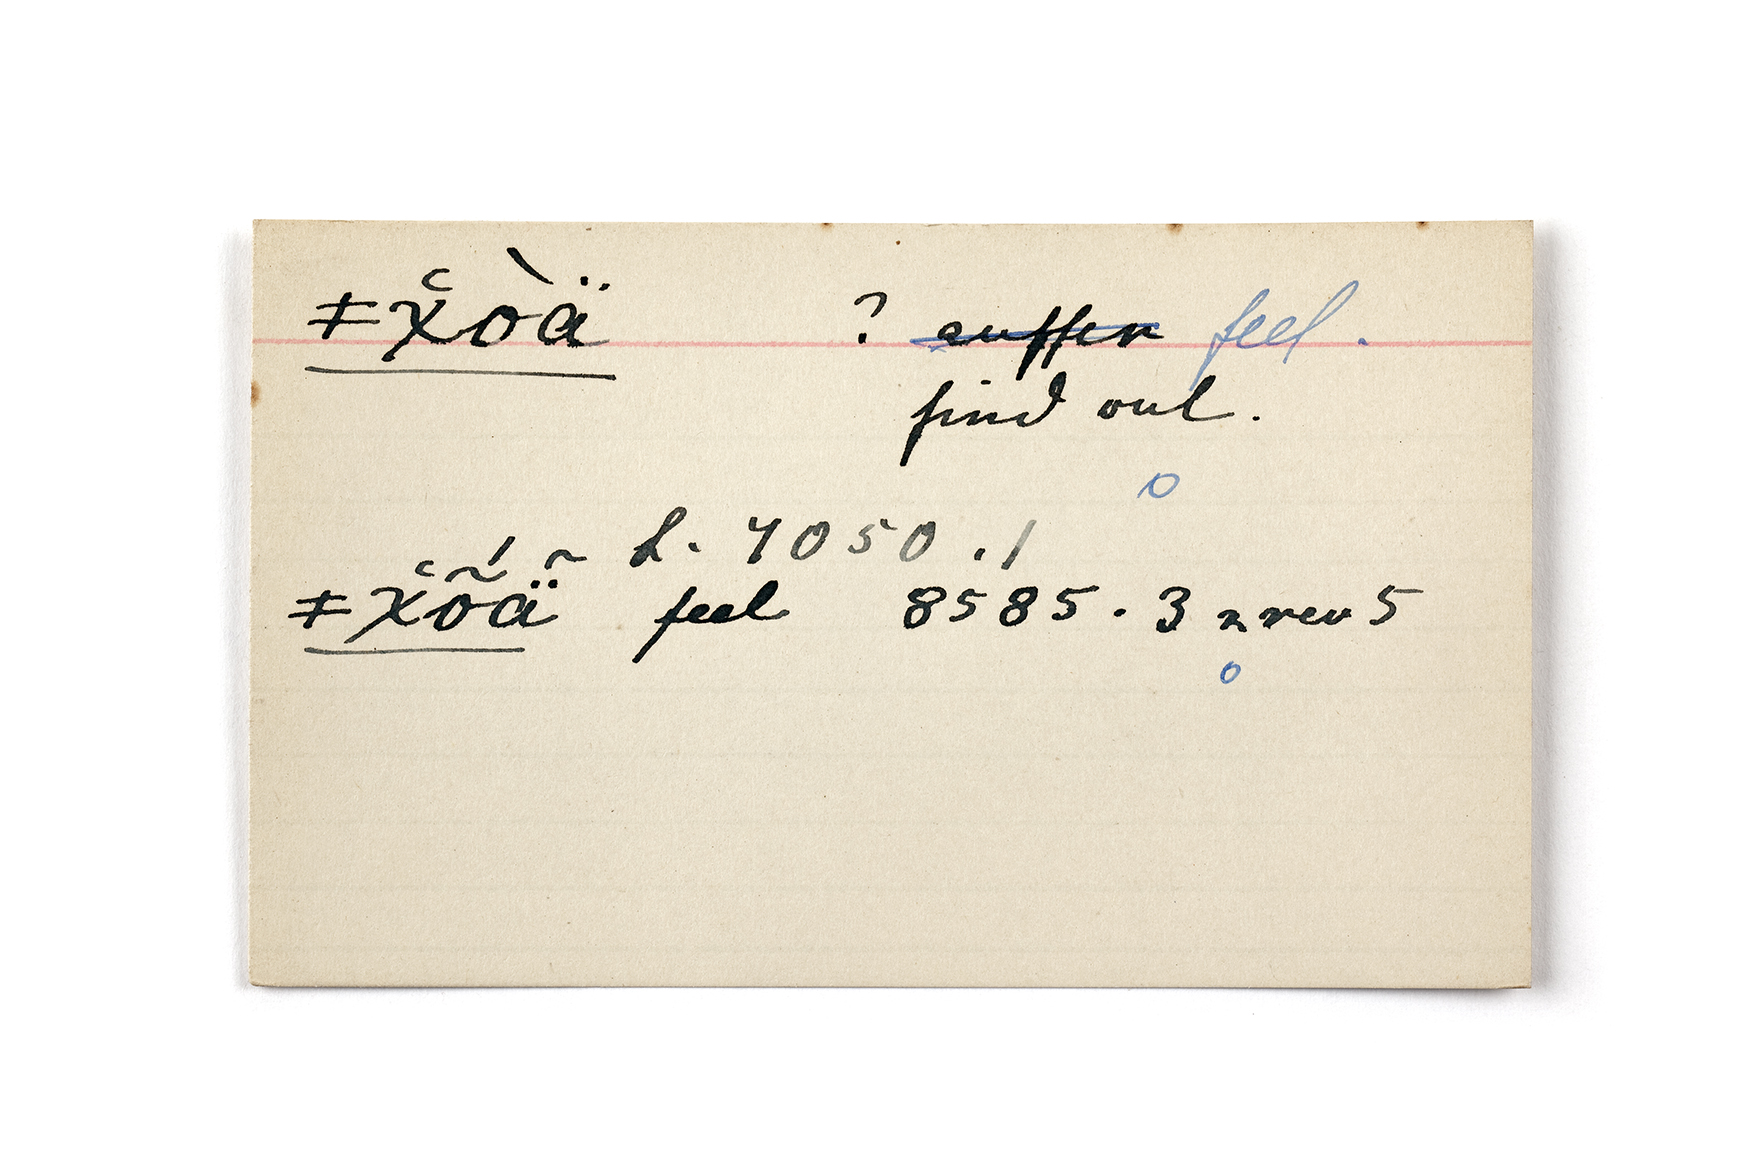 ǂx̆òä ? suffer feel.
find out.
L. 7050.1
ǂx̆ṍä̃ feel 8585.3 n rev 5